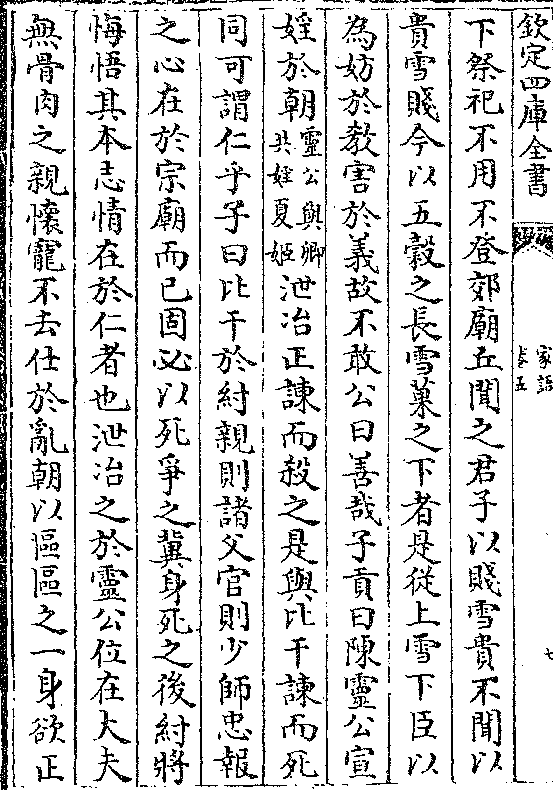 欽定四庫全書
家語
卷五
七
下祭祀不用不登郊廟丘聞之君子以賤雪貴不聞以
貴雪賤今以五穀之長雪菓之下者是從上雪下臣以
為妨於教害於義故不敢公曰善哉子貢曰陳靈公宣
婬於朝靈公與卿共婬夏姬泄冶正諫而殺之是與比干諫而死
同可謂仁乎子曰比干於紂親則諸父官則少師忠報
之心在於宗廟而已固必以死爭之冀身死之後紂將
悔悟其本志情在於仁者也泄冶之於靈公位在大夫
無骨肉之親懷寵不去仕於亂朝以區區之一身欲正